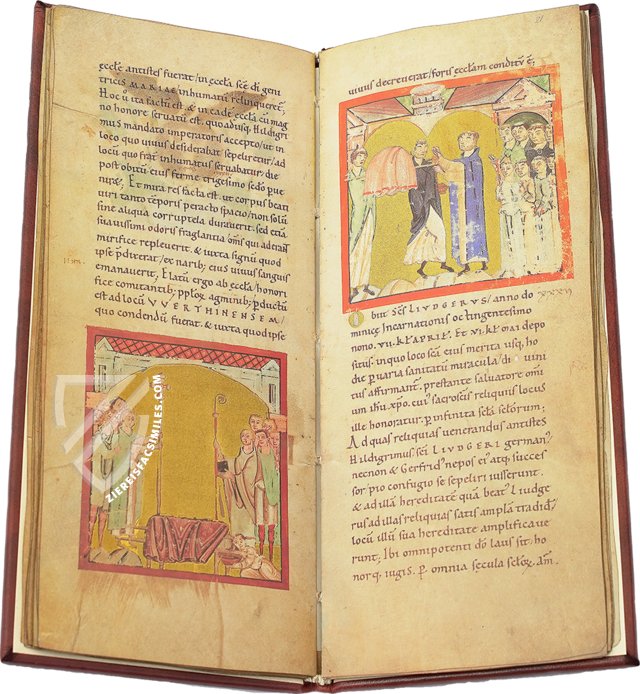 eccłę antistes fuerat/ in eccła scę dī gen
tricis MARIAE inhumatū relinqueret̄;
Hoc ita factū est. & in eadē eccła cū mag
no honore seruatū est. quo adusq; Hildigri
mus mandato imperatoris accepto/ ut in
loco quo uiuus desiderabat sepeliretur/ ad
locū quo frat̄ inhumatus seruabatur/ die
post obitū eius ferme trigesimo sedō p̄ue
Et mira res facta est. ut corpus beati
uiri tanto tēporis peracto spacio/ non solū
sine aliqua corruptela durauerit. sed etiā
suauissimi odoris fraglantia om̄s qui aderant
mirifice repleuerit. & iuxta signum quod
ipse p̄dixerat/ ex narib; eius uiuus sanguis
emanauerit. Elatū ergo ab eccła/ honori
fice comitantib; pp̄lor̄ agminib; p̄ductū
est ad locū VVERTHINENSEM/
quo condendū fuerat. & iuxta quod ipse
21
uiuus decreuerat/ foris eccłam conditū ē;
Obiit Scs LIUDGERUS/ anno do
minicę Incarnationis octingentesimo
nono. VII. kł APRIL. Et VI. kł MAI depo
situs. in quo loco scā eius merita usq; ho
die p̄ uaria sanitatū miracula/ di uini
tus affirmant̄. prestante saluatore om̄i
um ihū xp̄o. cui sacrosćis reliquiis locus
ille honoratur. p̄ infinita scła scłorum;
Ad quas reliquias uenerandus antistes
Hildigrimus scī LIUDGERI german̄
necnon & Gerfrid̄ nepos ei atq; succes
sor/ pio confugio se sepeliri iusserunt.
& ad illā hereditatē quā beat̄ Liudge
rus ad illas reliquias satis amplā tradid̄/
locū illū sua hereditate amplificaue
runt. Ibi omnipotenti dō laus sit/ ho
norq; iugis. p̄ omnia secula scłor̄. am̄.
ZIEREISFACSIMILES.COM